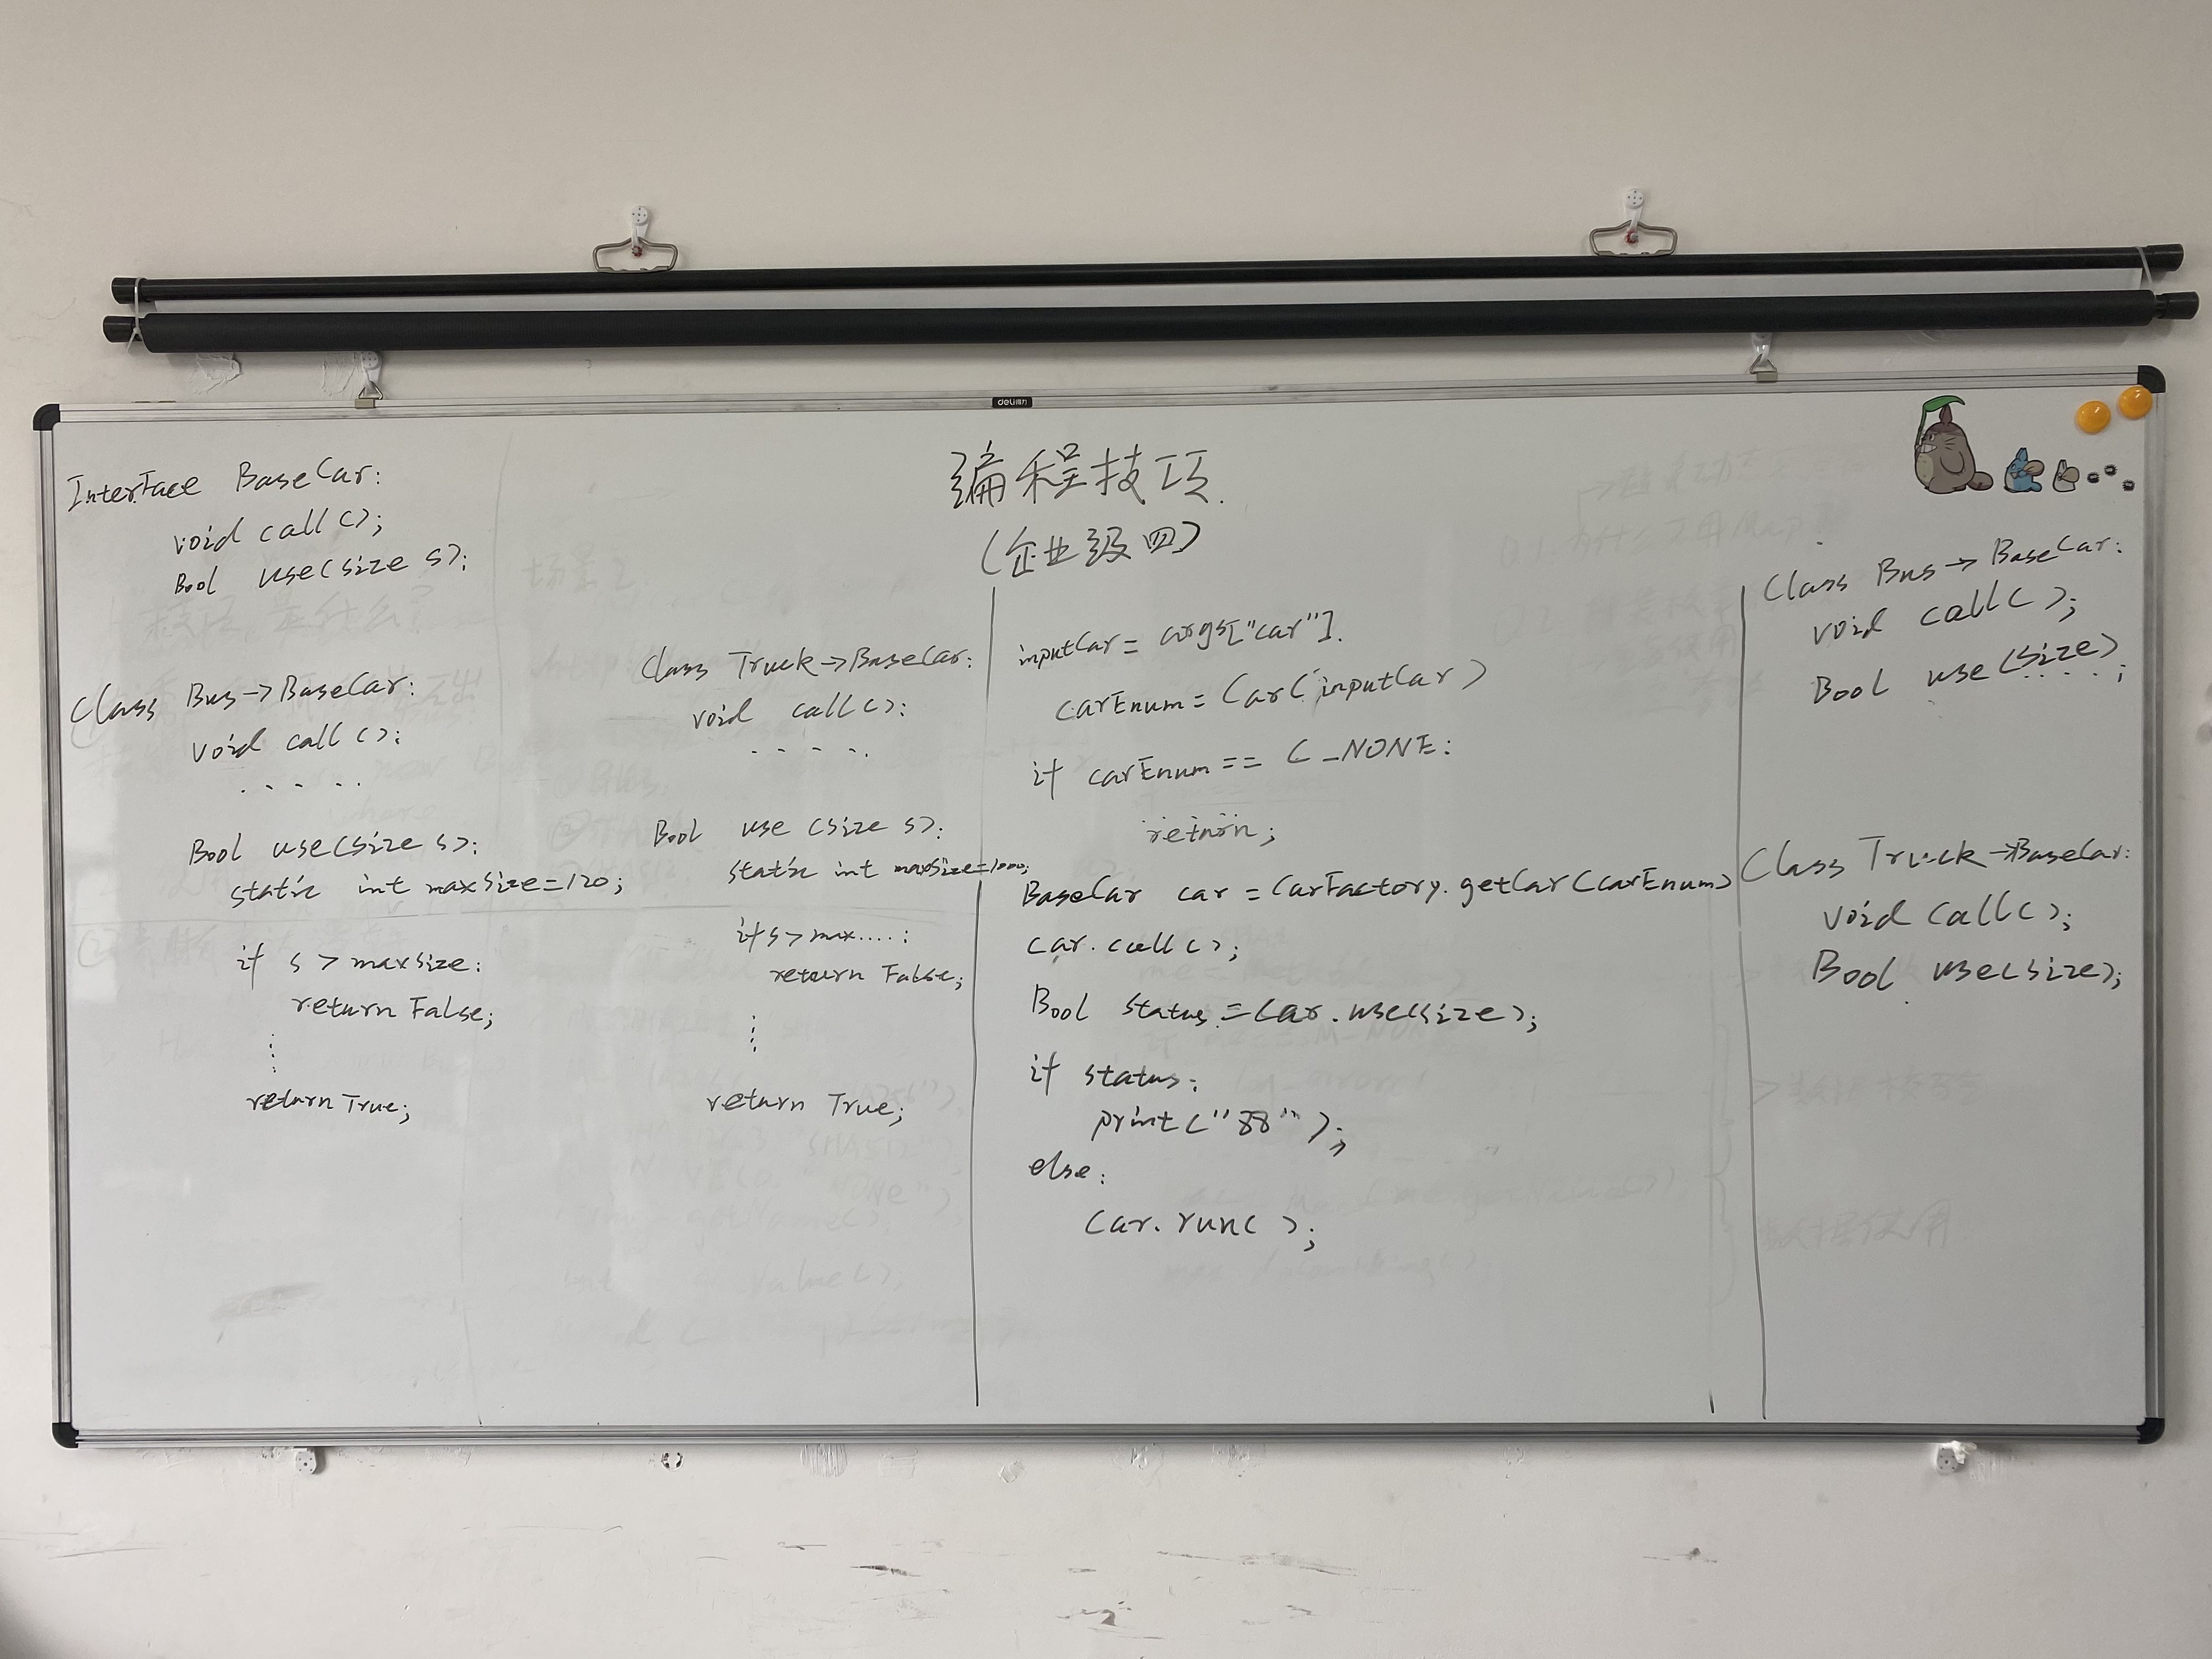 deli得力
编程技巧
(企业级四)
InterFace BaseCar:
void call();
Bool use(size s);
Class Bus->BaseCar:
void call():
.....
Bool use(size s):
static int maxSize=120;
if s > maxSize:
return False;
return True;
Class Truck->BaseCar:
void call():
.....
Bool use (size s):
static int maxSize=1000;
if s > max....:
return False;
return True;
inputCar = args["car"].
carEnum = Car(inputCar)
if carEnum == C_NONE:
return;
BaseCar car = CarFactory.getCar(carEnum)
car.call();
Bool status = car.use(size);
if status:
print("88");
else:
Car.run();
Class Bus->BaseCar:
void call();
Bool use(size);
Class Truck->BaseCar:
void call();
Bool use(size);